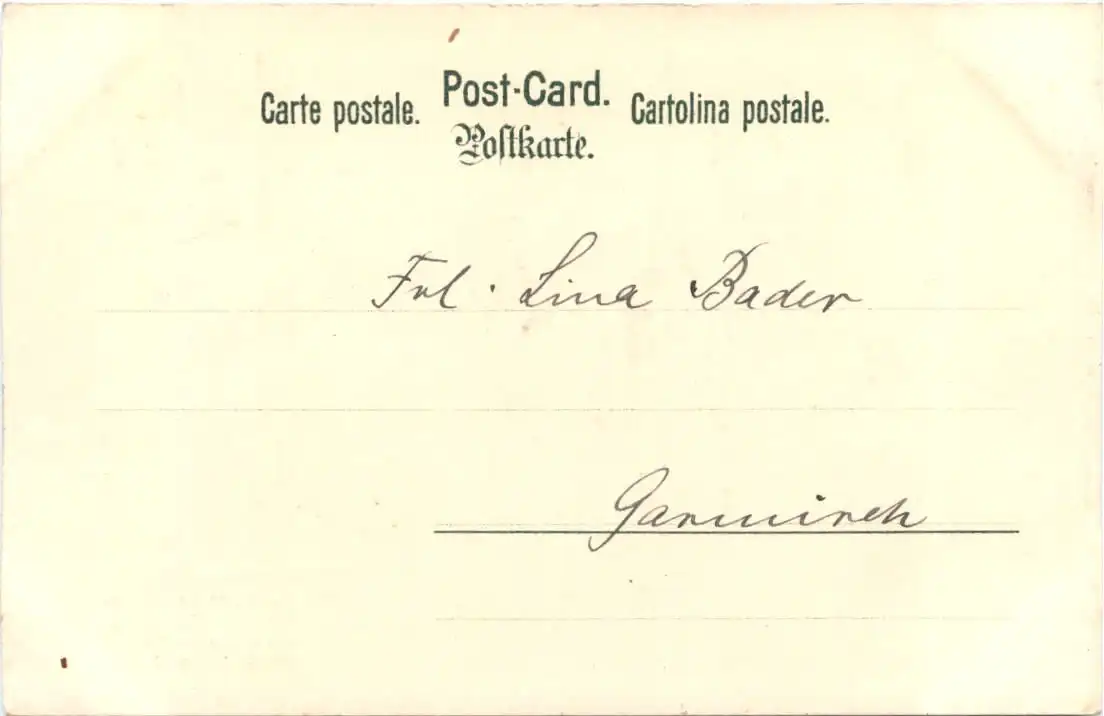 Post-Card.
Carte postale. Cartolina postale.
Postkarte.
Frl. Lina Bader
Garmirch